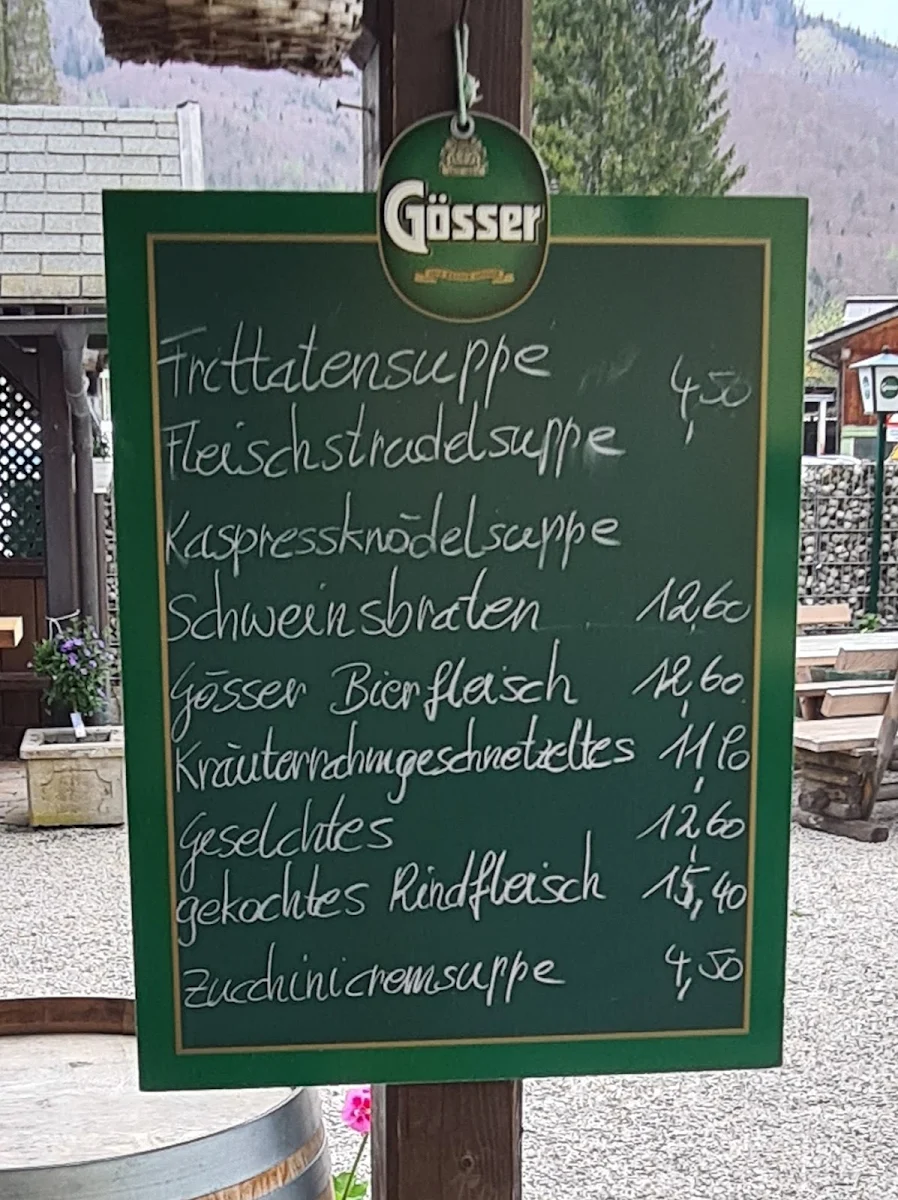 Gösser
Frittatensuppe
4,50
Fleischstrudelsuppe
Kaspressknödelsuppe
Schweinsbraten 12,60
Gösser Bierfleisch 12,60
Kräuterrahmgeschnetzeltes
Geselchtes 12,60
gekochtes Rindfleisch 15,40
Zucchinicremsuppe 4,50